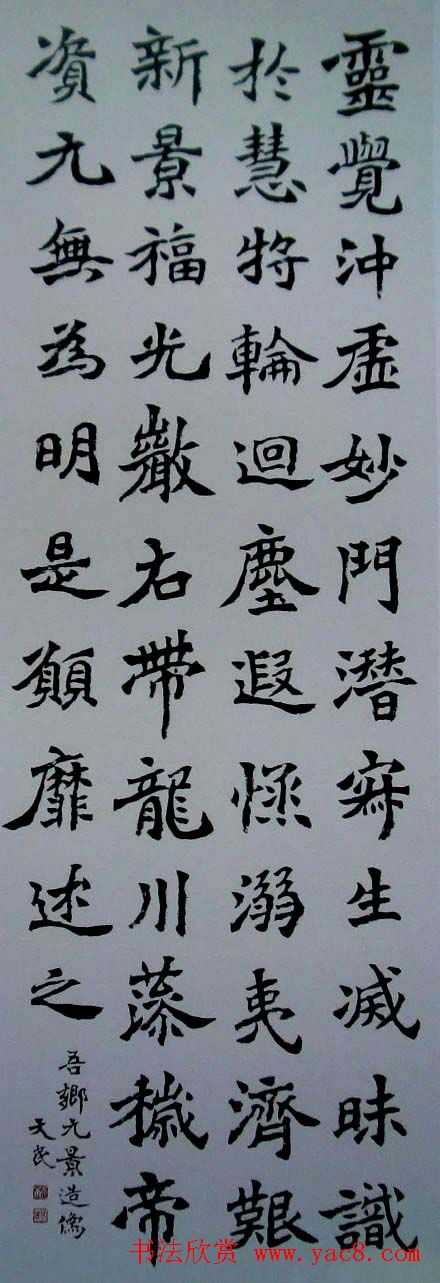 靈覺沖虛妙門潛寂生滅昧識
於慧將輪迴塵遐愻溺夷濟艱
新景福光巖右帶龍川蔱穢帝
資九無為明是顛靡述之
吾鄉元景造像
天民
书法欣赏 www.yac8.com